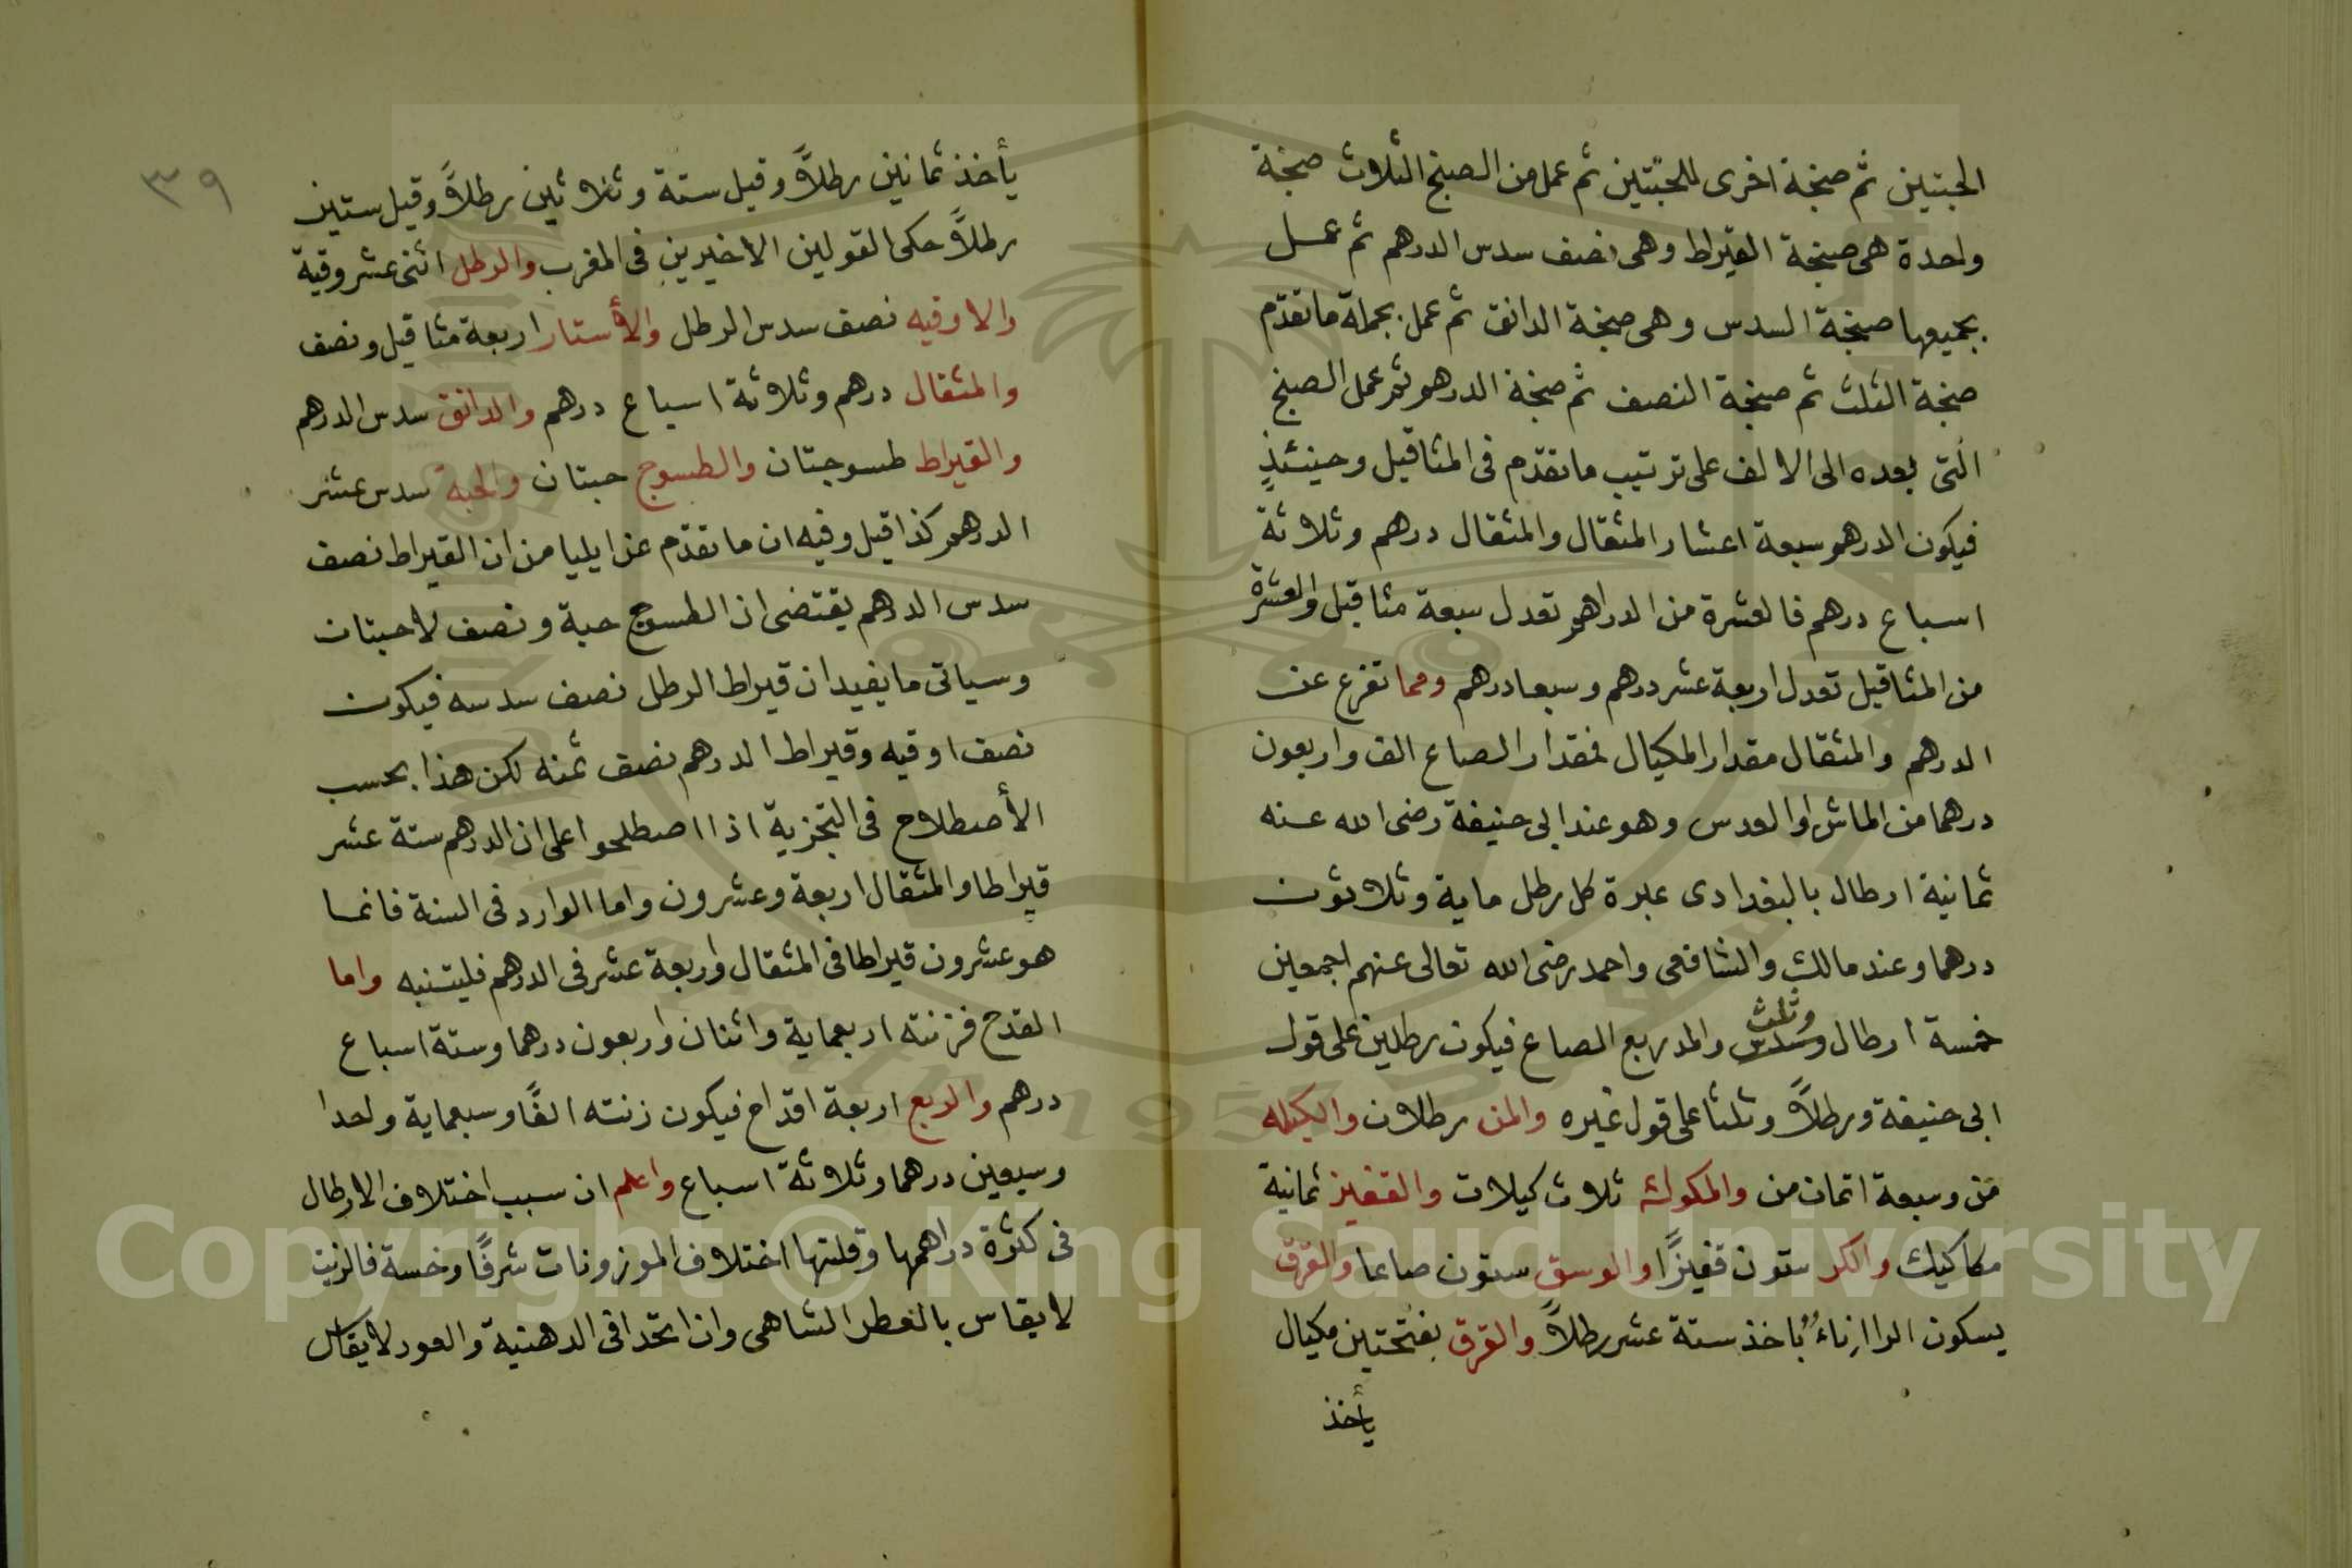 الحبتين ثم صنجة اخرى للحبتين ثم عمل من الصنج الثلاث صنجة
واحدة هى صنجة القيراط وهى نصف سدس الدرهم ثم عمل
بجميعها صنجة السدس وهى صنجة الدانق ثم عمل بجملة ما تقدم
صنجة الثلث ثم صنجة النصف ثم صنجة الدرهم ثم عمل الصنج
التى بعده الى الالف على ترتيب ما تقدم فى المثاقيل وحينئذٍ
فيكون الدرهم سبعة اعشار المثقال والمثقال درهم وثلاثة
اسباع درهم فالعشرة من الدراهم تعدل سبعة مثاقيل والعشرة
من المثاقيل تعدل اربعة عشر درهم وسبعا درهم ومما تفرع عن
الدرهم والمثقال مقدار المكيال فمقدار الصاع الف واربعون
درهما من الماش او العدس وهو عند ابى حنيفة رضى الله عنه
ثمانية ارطال بالبغدادى عبرة كل رطل ماية وثلاثون
درهما وعند مالك والشافعى واحمد رضى الله تعالى عنهم اجمعين
خمسة ارطال وسدس وثلث والمد ربع الصاع فيكون رطلين على قول
ابى حنيفة ورطلاً وثلثا على قول غيره والمن رطلان والكيله
من وسبعة اثمان من والمكوك ثلاث كيلات والقفيز ثمانية
مكاكيك والكر ستون قفيزًا والوسق ستون صاعا والفرق
بسكون الراء اناء ياخذ ستة عشر رطلاً والفرق بفتحتين مكيال
يأخذ
٣٩
يأخذ ثمانين رطلاً وقيل ستة وثلاثين رطلاً وقيل ستين
رطلاً حكى القولين الاخيرين فى المغرب والرطل اثنى عشر وقية
والاوقيه نصف سدس الرطل والأستار اربعة مثاقيل ونصف
والمثقال درهم وثلاثة اسباع درهم والدانق سدس الدرهم
والقيراط طسوجتان والطسوج حبتان والحبة سدس عشر
الدرهم كذا قيل وفيه ان ما تقدم عن ايليا من ان القيراط نصف
سدس الدرهم يقتضى ان الطسوج حبة ونصف لا حبتان
وسياتى ما يفيد ان قيراط الرطل نصف سدسه فيكون
نصف اوقيه وقيراط الدرهم نصف ثمنه لكن هذا بحسب
الأصطلاح فى التجزية اذا اصطلحوا على ان الدرهم ستة عشر
قيراطا والمثقال اربعة وعشرون واما الوارد فى السنة فانما
هو عشرون قيراطا فى المثقال واربعة عشر فى الدرهم فليتنبه واما
القدح فزنته اربعماية واثنان واربعون درهما وستة اسباع
درهم والربع اربعة اقداح فيكون زنته الفًا وسبعماية واحدا
وسبعين درهما وثلاثة اسباع واعلم ان سبب اختلاف الارطال
فى كثرة دراهمها وقلتها اختلاف الموزونات شرفًا وخسة فالزيت
لا يقاس بالعطر الشاهى وان اتحدا فى الدهنية والعود لا يقاس
Copyright © King Saud University